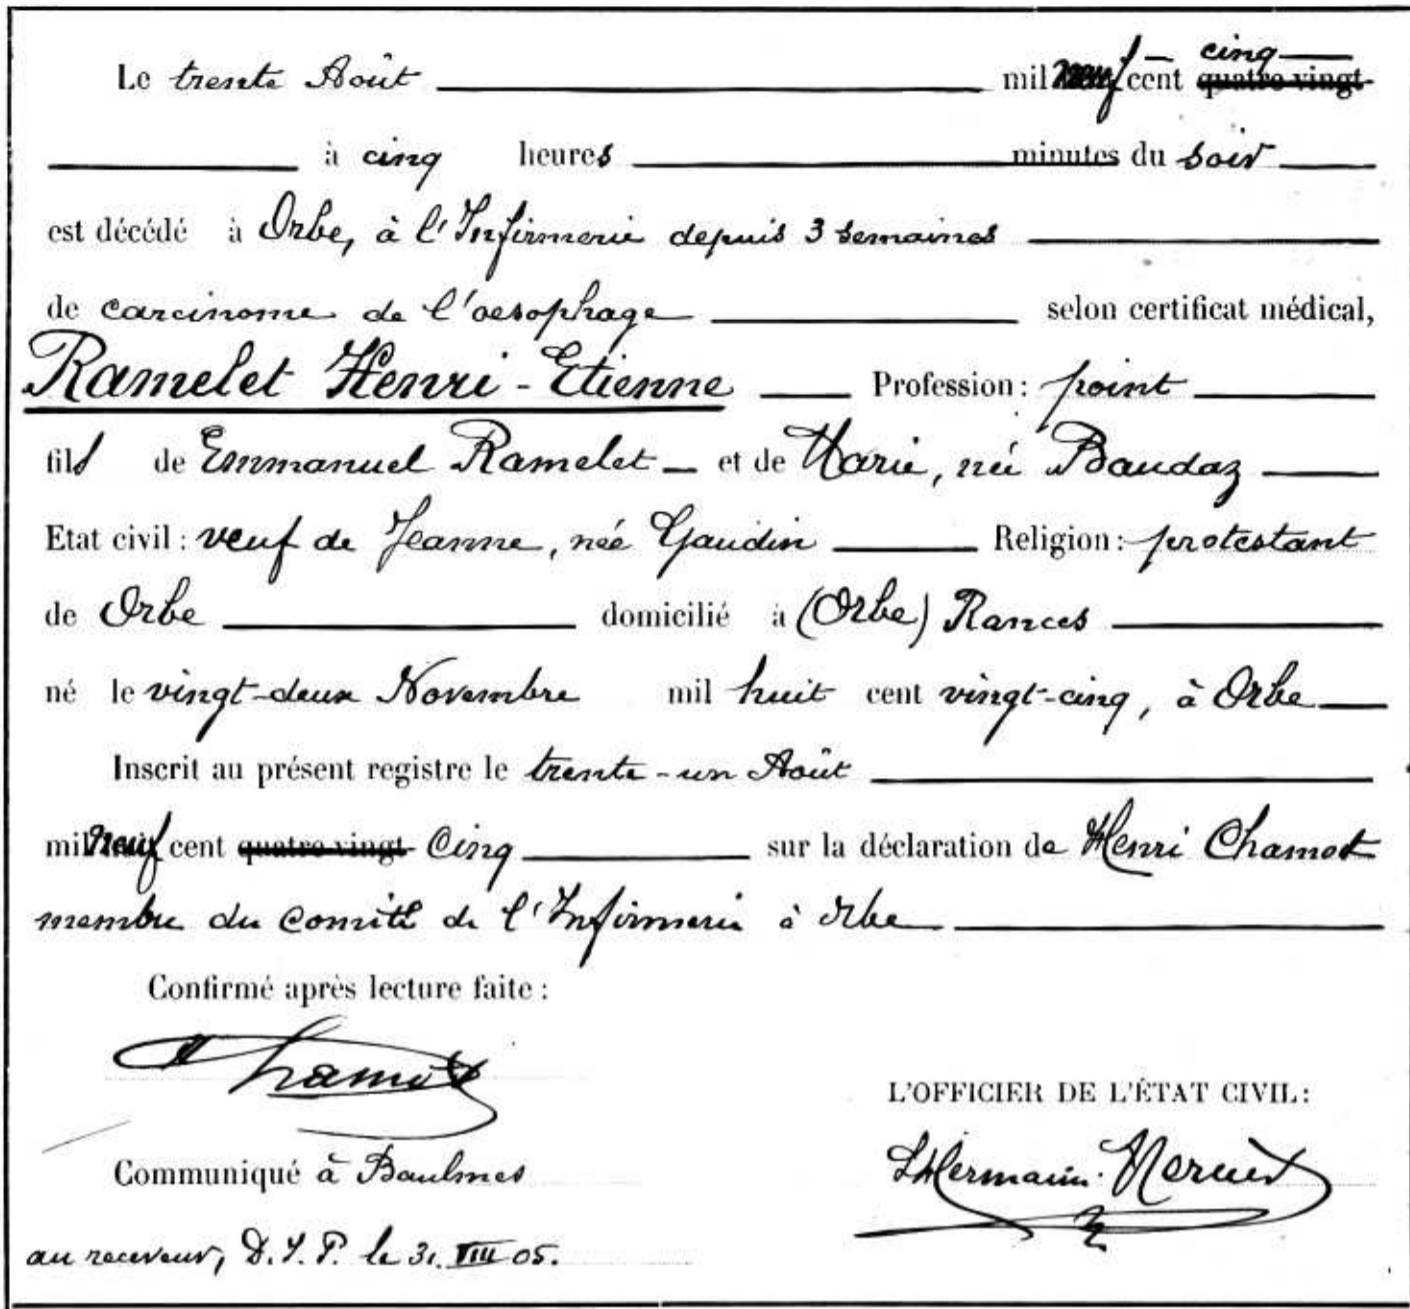 Le trente Août mil neuf cent cinq quatre-vingt-
à cinq heures minutes du soir
est décédé à Orbe, à l'Infirmerie depuis 3 semaines
de carcinome de l'oesophage selon certificat médical,
Ramelet Henri-Etienne Profession: point
fils de Emmanuel Ramelet et de Marie, née Baudaz
Etat civil: veuf de Jeanne, née Gaudin Religion: protestant
de Orbe domicilié à (Orbe) Rances
né le vingt-deux Novembre mil huit cent vingt-cinq, à Orbe
Inscrit au présent registre le trente-un Août
mil neuf cent quatre-vingt- cinq sur la déclaration de Henri Chamot
membre du Comité de l'Infirmerie à Orbe
Confirmé après lecture faite:
Chamot
L'OFFICIER DE L'ÉTAT CIVIL:
Communiqué à Baulmes
au receveur, D. I. P. le 31. VIII 05.